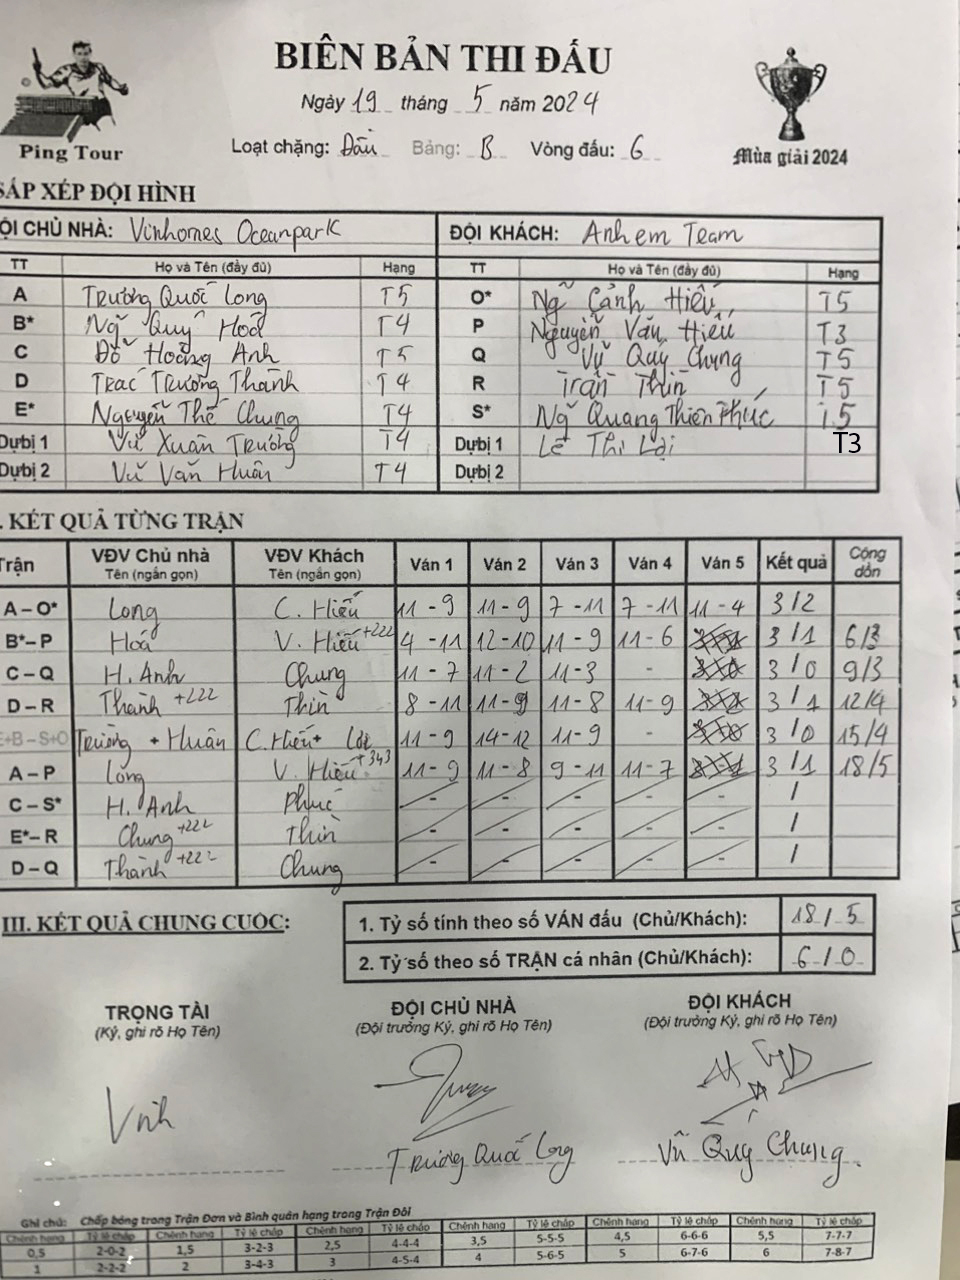 BIÊN BẢN THI ĐẤU
Ngày 19 tháng 5 năm 2024
Ping Tour
Loạt chặng: Đầu Bảng: B Vòng đấu: 6
Mùa giải 2024
SẮP XẾP ĐỘI HÌNH
ỘI CHỦ NHÀ: Vinhomes Oceanpark ĐỘI KHÁCH: Anh em Team
TT Họ và Tên (đầy đủ) Hạng TT Họ và Tên (đầy đủ) Hạng
A Trương Quốc Long T5 O* Ng Cảnh Hiếu T5
B* Ng Quý Hoà T4 P Nguyễn Văn Hiếu T3
C Đỗ Hoàng Anh T5 Q Vũ Quý Chung T5
D Trac Trương Thành T4 R Trần Thìn T5
E* Nguyễn Thế Chung T4 S* Ng Quang Thiên Phúc T5
Dự bị 1 Vũ Xuân Trường T4 Dự bị 1 Lê Thi Lợi T3
Dự bị 2 Vũ Văn Huân T4 Dự bị 2
. KẾT QUẢ TỪNG TRẬN
Trận VĐV Chủ nhà Tên (ngắn gọn) VĐV Khách Tên (ngắn gọn) Ván 1 Ván 2 Ván 3 Ván 4 Ván 5 Kết quả Cộng dồn
A – O* Long C. Hiếu 11 - 9 11 - 9 7 - 11 7 - 11 11 - 4 3 / 2
B* – P Hoà V. Hiếu +222 4 - 11 12 - 10 11 - 9 11 - 6 3 / 1 6/3
C – Q H. Anh Chung 11 - 7 11 - 2 11 - 3 - 3 / 0 9/3
D – R Thành +222 Thìn 8 - 11 11 - 9 11 - 8 11 - 9 3 / 1 12/4
E+B – S+O Trường + Huân C. Hiếu + Lợi 11 - 9 14 - 12 11 - 9 - 3 / 0 15/4
A – P Long V. Hiếu +343 11 - 9 11 - 8 9 - 11 11 - 7 3 / 1 18/5
C – S* H. Anh Phúc - - - - - /
E* – R Chung +222 Thìn - - - - - /
D – Q Thành +222 Chung - - - - - /
III. KẾT QUẢ CHUNG CUỘC:
1. Tỷ số tính theo số VÁN đấu (Chủ/Khách): 18 / 5
2. Tỷ số theo số TRẬN cá nhân (Chủ/Khách): 6 / 0
TRỌNG TÀI ĐỘI CHỦ NHÀ ĐỘI KHÁCH
(Ký, ghi rõ Họ Tên) (Đội trưởng Ký, ghi rõ Họ Tên) (Đội trưởng Ký, ghi rõ Họ Tên)
Trương Quốc Long Vũ Quý Chung.
Ghi chú: Chấp bóng trong Trận Đơn và Bình quân hạng trong Trận Đôi
Chênh hạng Tỷ lệ chấp Chênh hạng Tỷ lệ chấp Chênh hạng Tỷ lệ chấp Chênh hạng Tỷ lệ chấp Chênh hạng Tỷ lệ chấp Chênh hạng Tỷ lệ chấp
0,5 2-0-2 1,5 3-2-3 2,5 4-4-4 3,5 5-5-5 4,5 6-6-6 5,5 7-7-7
1 2-2-2 2 3-4-3 3 4-5-4 4 5-6-5 5 6-7-6 6 7-8-7